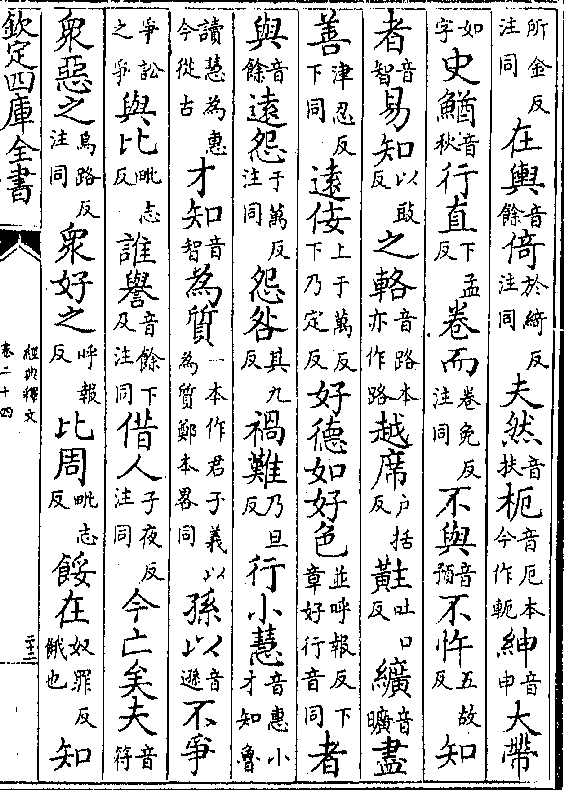 所金反注同在輿音餘倚於綺反注同夫然音扶枙音厄本今作軛紳音申大帶
如字史鰌音秋行直下孟反卷而卷免反注同不與音預不忤五故反知
者音智易知以豉反之輅音路本亦作路越席户括反黈吐口反纊音曠盡
善津忍反下同遠佞上于萬反下乃定反好德如好色並呼報反下章好行音同者
與音餘遠怨于萬反注同怨咎其九反禍難乃旦反行小慧音惠小才知魯
讀慧為惠今從古才知音智為質一本作君子義以為質鄭本畧同孫以音遜不爭
爭訟之爭與比毗志反誰譽音餘下及注同借人子夜反注同今亡矣夫音符
衆惡之烏路反注同衆好之呼報反比周毗志反餒在奴罪反餓也知
欽定四庫全書
經典釋文
卷二十四
二十三